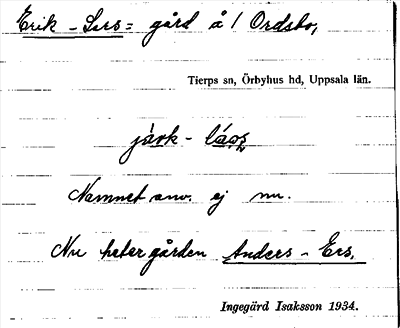 Erik-Lars= gård å / Ordsbo,
Tierps sn, Örbyhus hd, Uppsala län.
Namnet anv. ej nu.
Nu heter gården Anders-Ers.
Ingegärd Isaksson 1934.